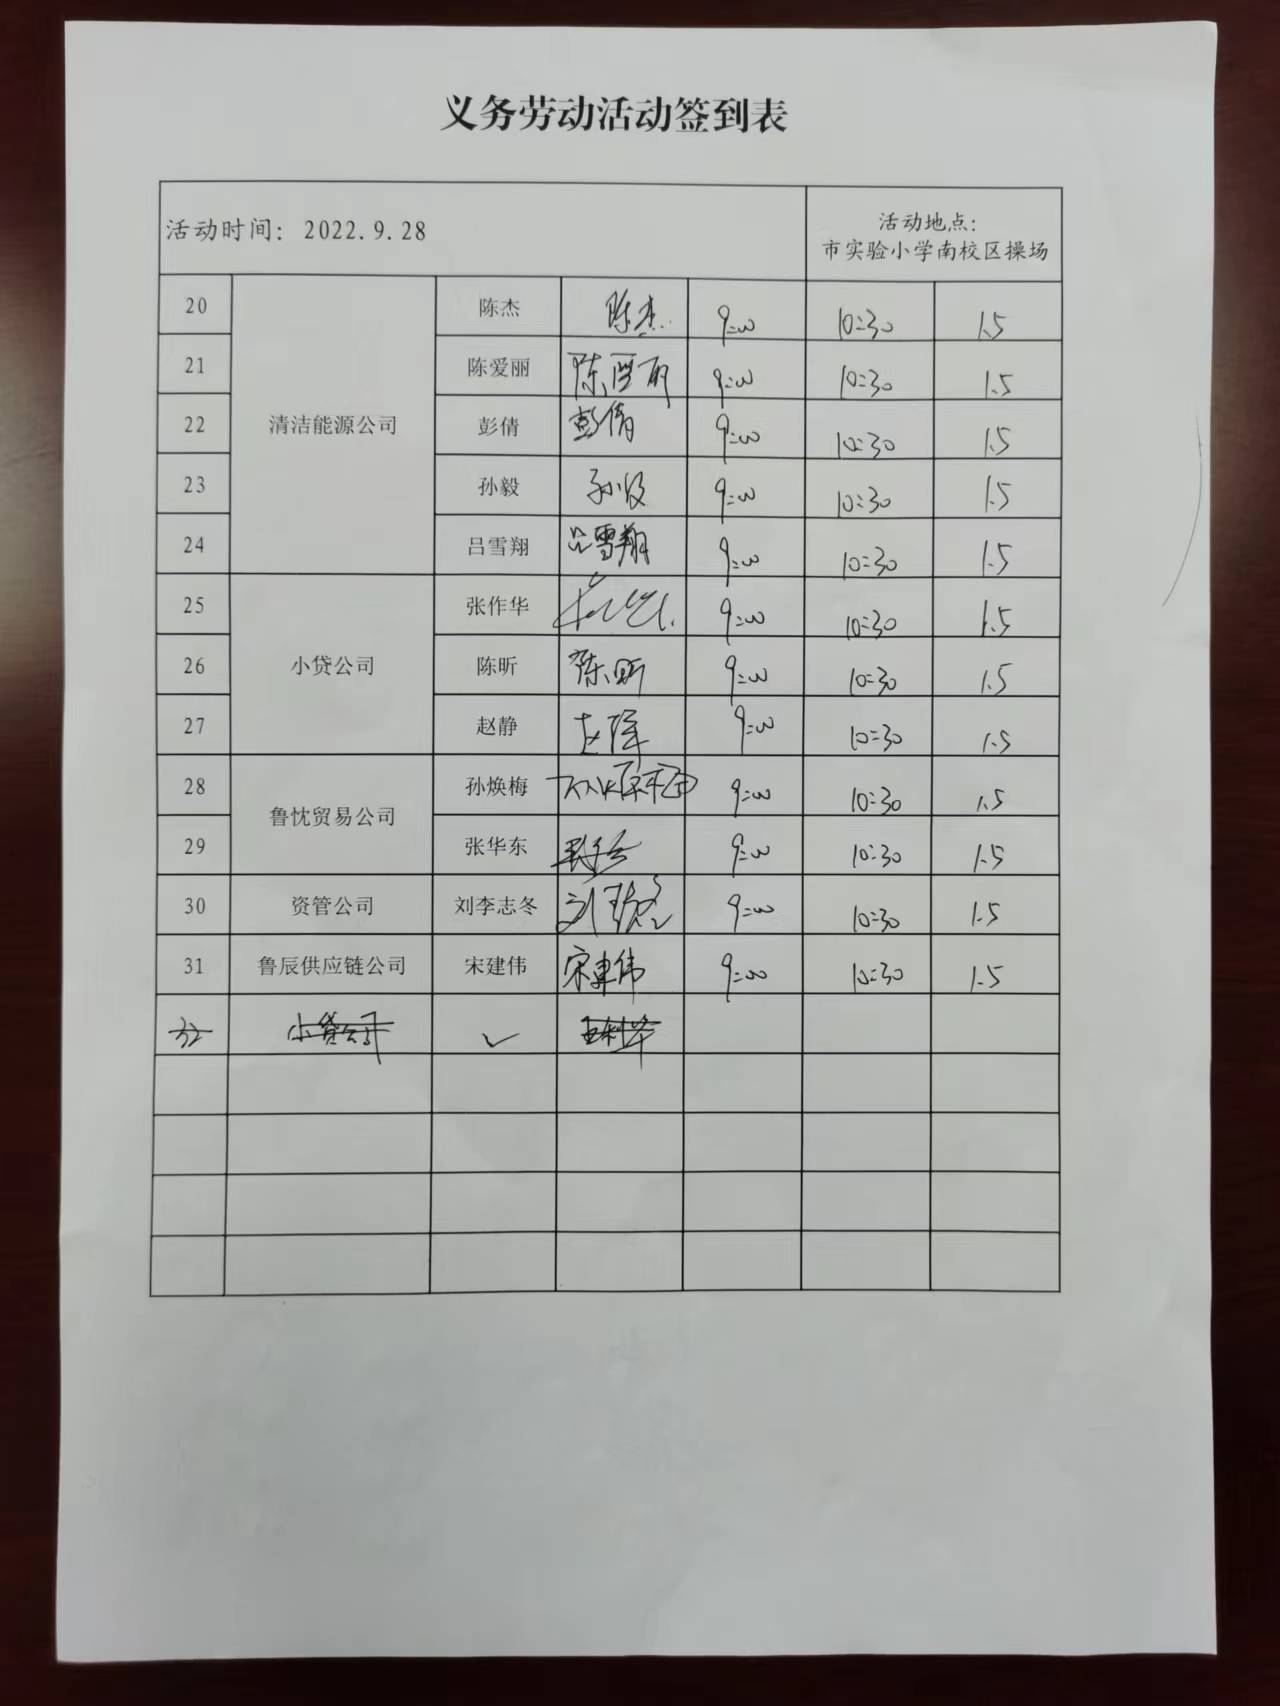 义务劳动活动签到表
活动时间：2022.9.28
活动地点：
市实验小学南校区操场
20 清洁能源公司 陈杰 陈杰 9:00 10:30 1.5
21 陈爱丽 陈爱丽 9:00 10:30 1.5
22 彭倩 彭倩 9:00 10:30 1.5
23 孙毅 孙毅 9:00 10:30 1.5
24 吕雪翔 吕雪翔 9:00 10:30 1.5
25 小贷公司 张作华 9:00 10:30 1.5
26 陈昕 陈昕 9:00 10:30 1.5
27 赵静 赵静 9:00 10:30 1.5
28 鲁忱贸易公司 孙焕梅 孙焕梅 9:00 10:30 1.5
29 张华东 9:00 10:30 1.5
30 资管公司 刘李志冬 9:00 10:30 1.5
31 鲁辰供应链公司 宋建伟 宋建伟 9:00 10:30 1.5
32 小贷公司